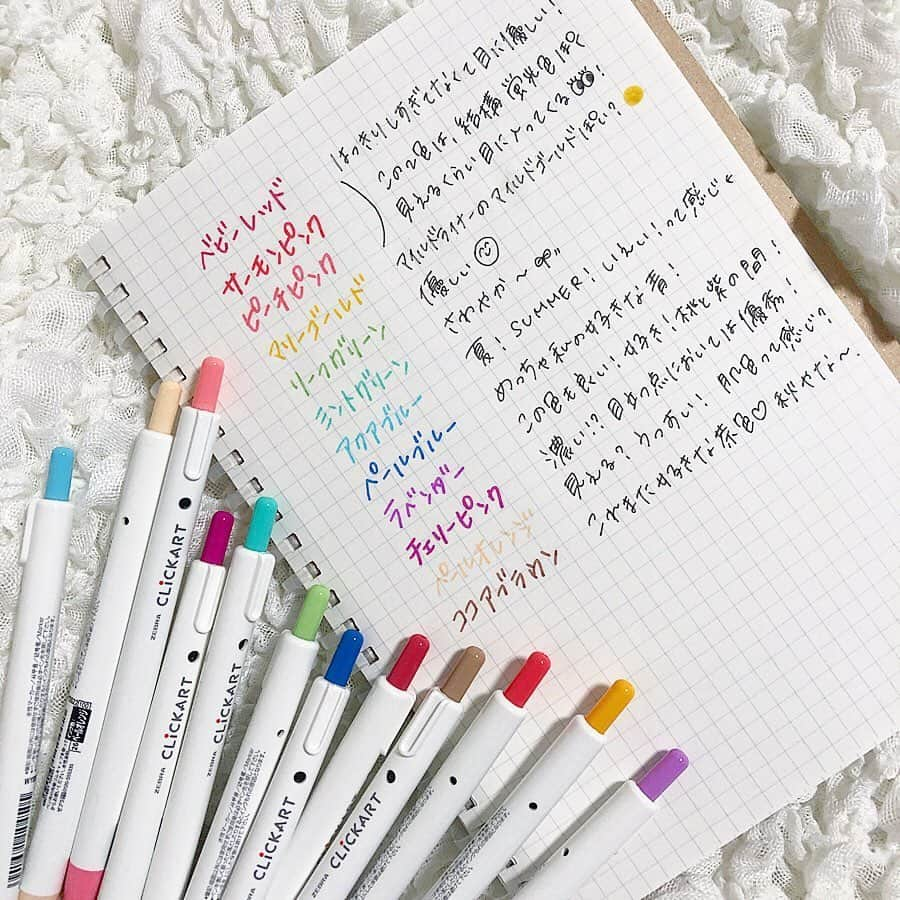 はっきりしすぎてなくて目に優しい!
この2色は、結構蛍光色ぽく
見えるくらい目に入ってくる!
マイルドライナーのマイルドゴールドぽい?
優しい
さわやか〜
夏! SUMMER! いえい! って感じ
めっちゃ私の好きな青!
この色も良い! 好き! 桃と紫の間!
濃い!? 目立つ点においては優秀!
見える? うっすい! 肌色って感じ?
これまた好きな茶色♡ 秋やな〜.
ベビーレッド
サーモンピンク
ピーチピンク
マリーゴールド
リーフグリーン
ミントグリーン
アクアブルー
ペールブルー
ラベンダー
チェリーピンク
ペールオレンジ
ココアブラウン
ZEBRA CLiCKART
ZEBRA CLiCKART
ZEBRA CLiCKART
ZEBRA CLiCKART
ZEBRA CLiCKART